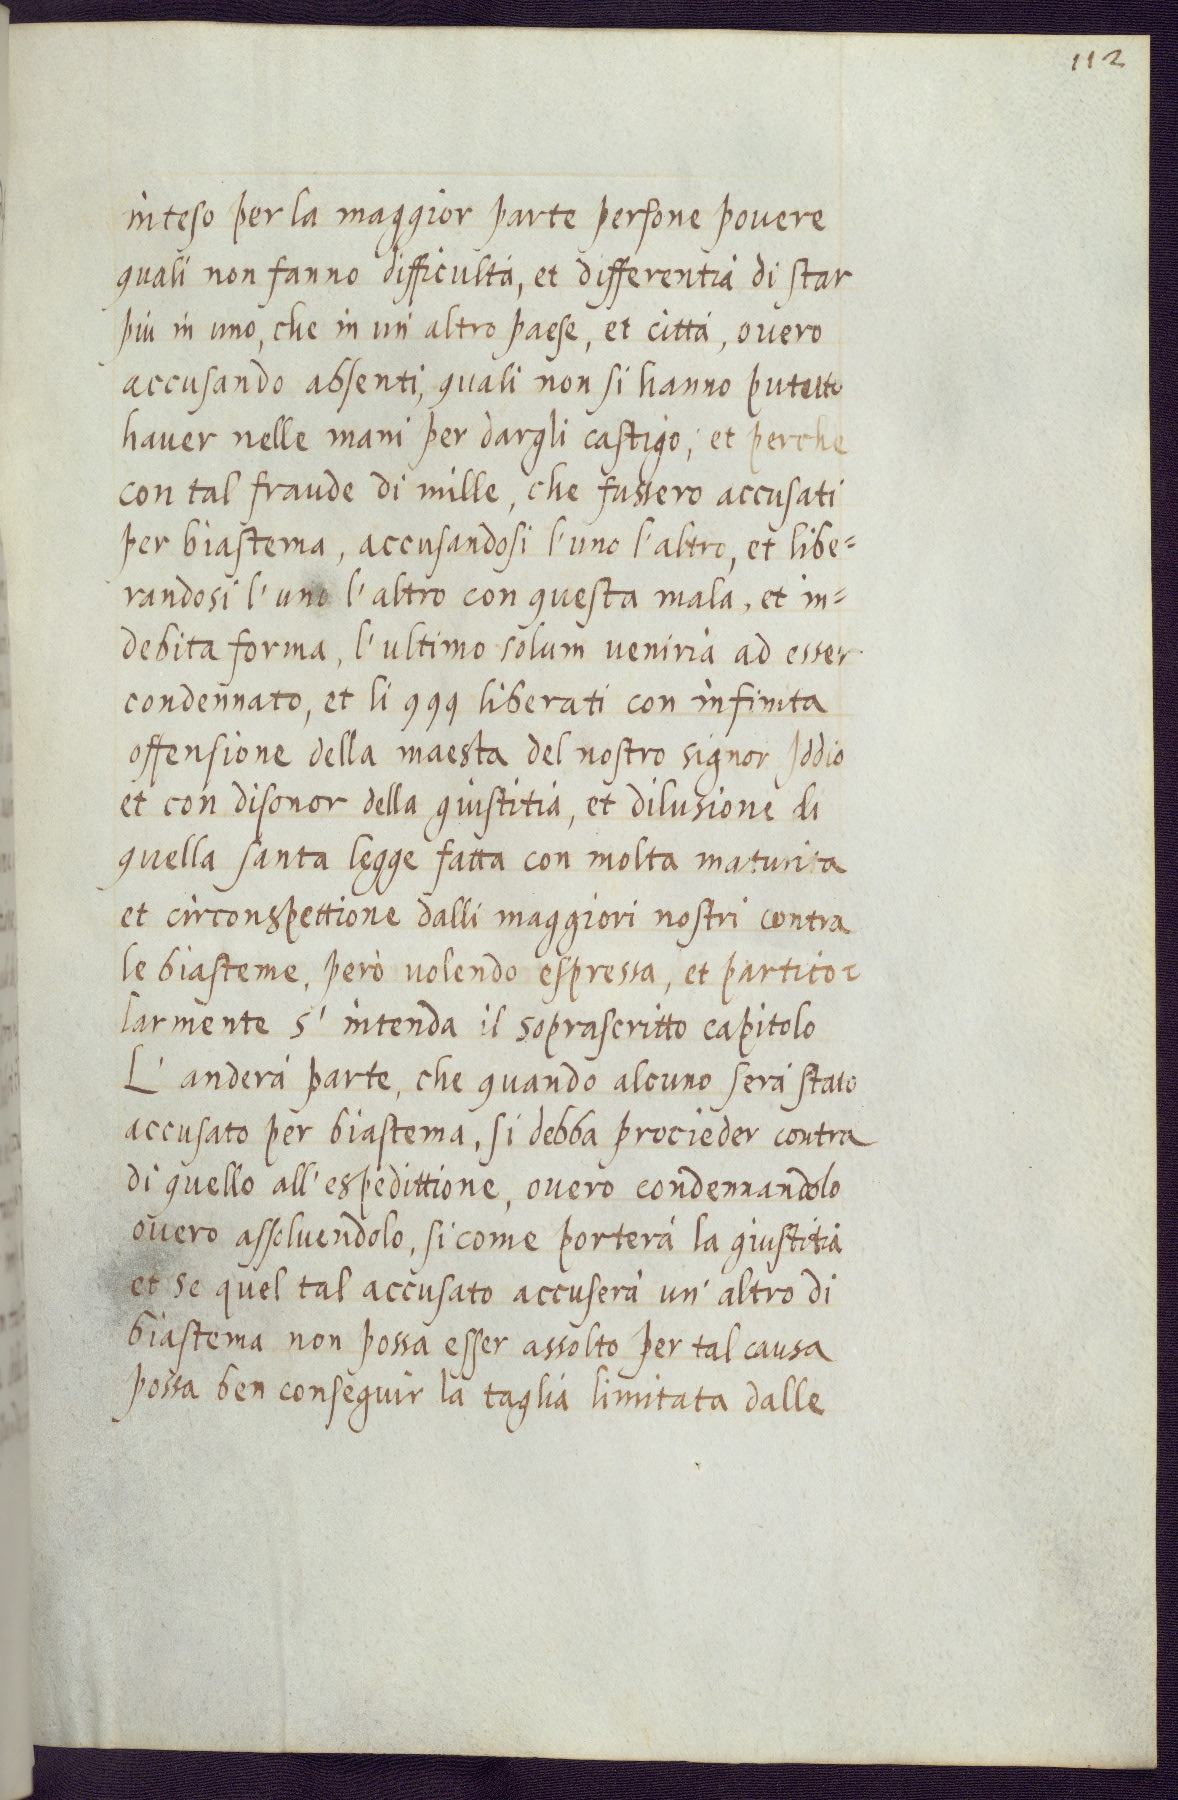 112
inteso per la maggior parte persone povere
quali non fanno difficultá, et differentia di star
piú in uno, che in un' altro paese, et cittá, overo
accusando absenti, quali non si hanno
haver nelle mani per dargli castigo, et perche
con tal fraude di mille, che fussero accusati
per biastema, accusandosi l'uno l'altro, et libe=
randosi l'uno l'altro con questa mala, et in=
debita forma, l'ultimo solum veniria ad esser
condennato, et li 999 liberati con infinita
offensione della maesta del nostro signor Iddio
et con disonor della giustitia, et dilusione di
quella santa legge fatta con molta maturita
et circonspettione dalli maggiori nostri contra
le biasteme, però volendo espressa, et particor
larmente s' intenda il soprascritto capitolo
L' anderá parte, che quando alcuno será stato
accusato per biastema, si debba procieder contra
di quello all'espedittione, overo condennandolo
overo assolvendolo, si come porterá la giustitia
et se quel tal accusato accuserá un' altro di
biastema non possa esser assolto per tal causa
possa ben conseguir la taglia limitata dalle